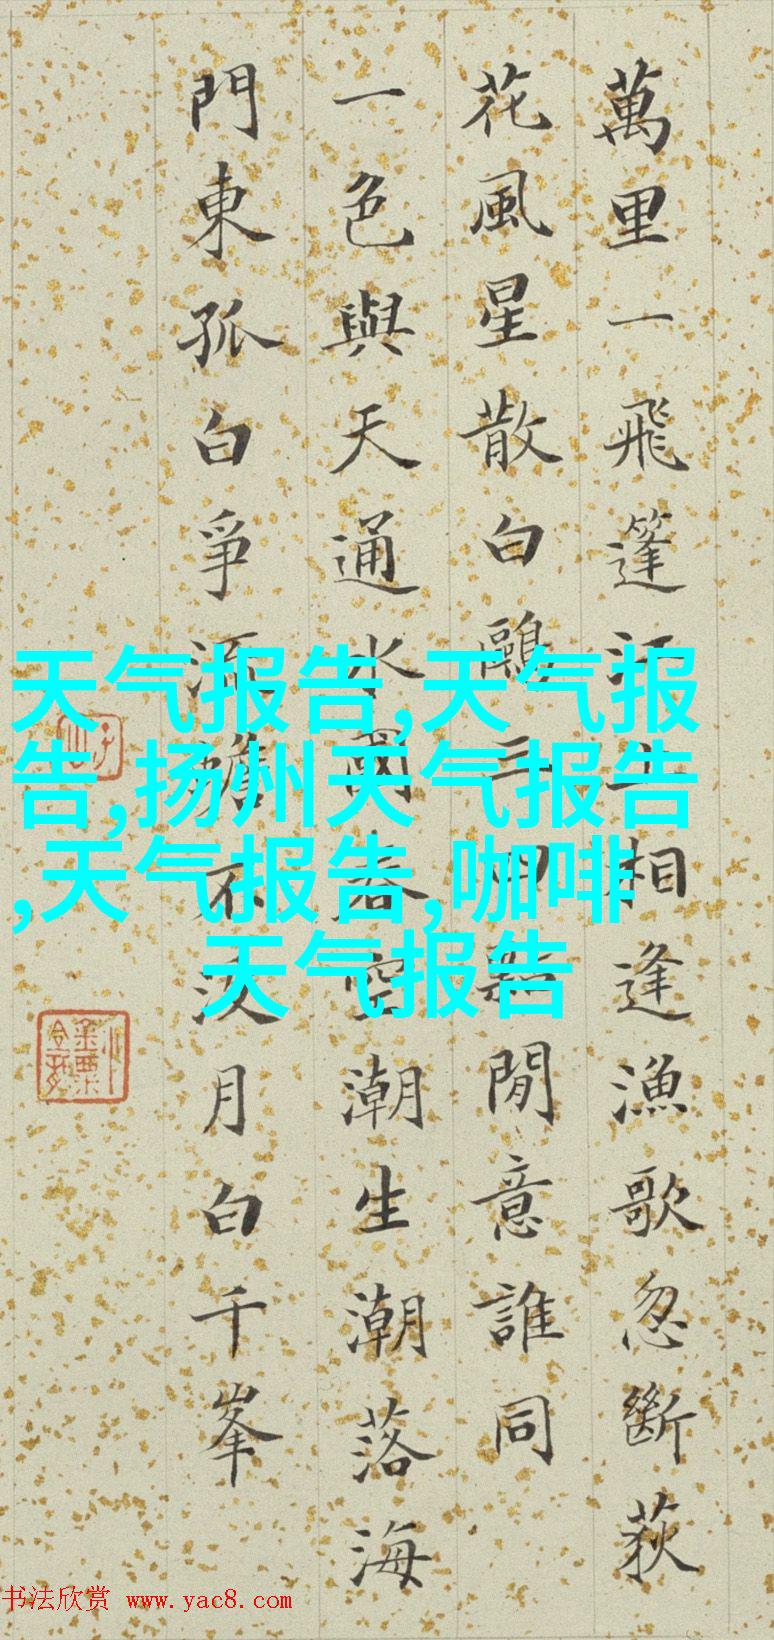 萬里一飛篷江上相逢漁歌忽斷荻
花風星散白鷗三四點閒意誰同
一色與天通水國春空潮生潮落海
門東孤白爭流蟾不沒月白千峯
天气报告,天气报
告,扬州天气报告
,天气报告,咖啡
天气报告
书法欣赏 www.yac8.com